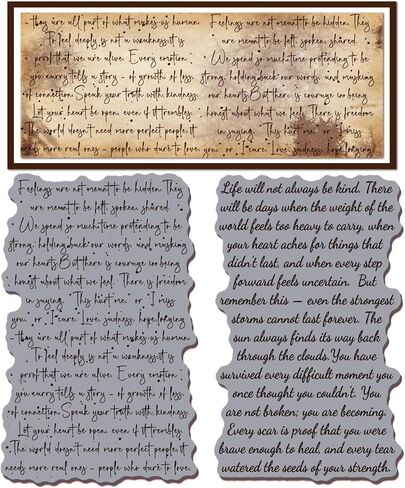 - they are all part of what makes us human.
To feel deeply is not a weakness it is
proof that we are alive. Every emotion
you carry tells a story - of growth, of loss,
of connection. Speak your truth with kindness.
Let your heart be open, even if it trembles.
The world doesn't need more perfect people it
needs more real ones - people who dare to love,
Feelings are not meant to be hidden. They
are meant to be felt, spoken, shared.
We spend so much time pretending to be
strong, holding back our words, and masking
our hearts. But there is courage in being
honest about what we feel. There is freedom
in saying, "This hurt me," or "I miss
you," or "I care." Love, sadness, hope, longing
Feelings are not meant to be hidden. They
are meant to be felt, spoken, shared.
We spend so much time pretending to be
strong, holding back our words, and masking
our hearts. But there is courage in being
honest about what we feel. There is freedom
in saying, "This hurt me," or "I miss
you," or "I care." Love, sadness, hope, longing
- they are all part of what makes us human.
To feel deeply is not a weakness it is
proof that we are alive. Every emotion
you carry tells a story - of growth, of loss,
of connection. Speak your truth with kindness.
Let your heart be open, even if it trembles.
The world doesn't need more perfect people, it
needs more real ones - people who dare to love,
Life will not always be kind. There
will be days when the weight of the
world feels too heavy to carry, when
your heart aches for things that
didn't last, and when every step
forward feels uncertain. But
remember this — even the strongest
storms cannot last forever. The
sun always finds its way back
through the clouds. You have
survived every difficult moment you
once thought you couldn't. You
are not broken; you are becoming.
Every scar is proof that you were
brave enough to heal, and every tear
watered the seeds of your strength.